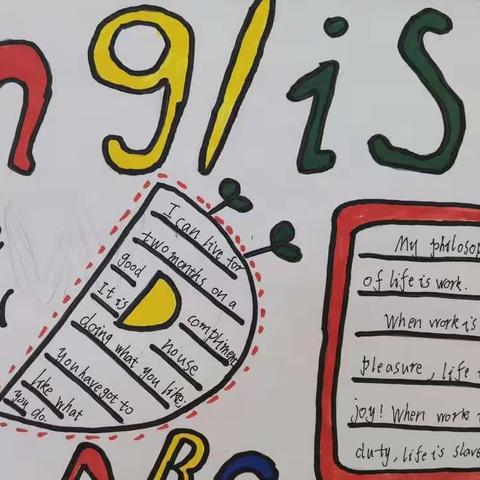 nglis
I can live for
two months on a
good compliment
It is no use
doing what you like;
you have got to
like what
you do.
My philosop
of life is work.
When work is
pleasure, life i
joy! When work
duty, life is slave
ABC